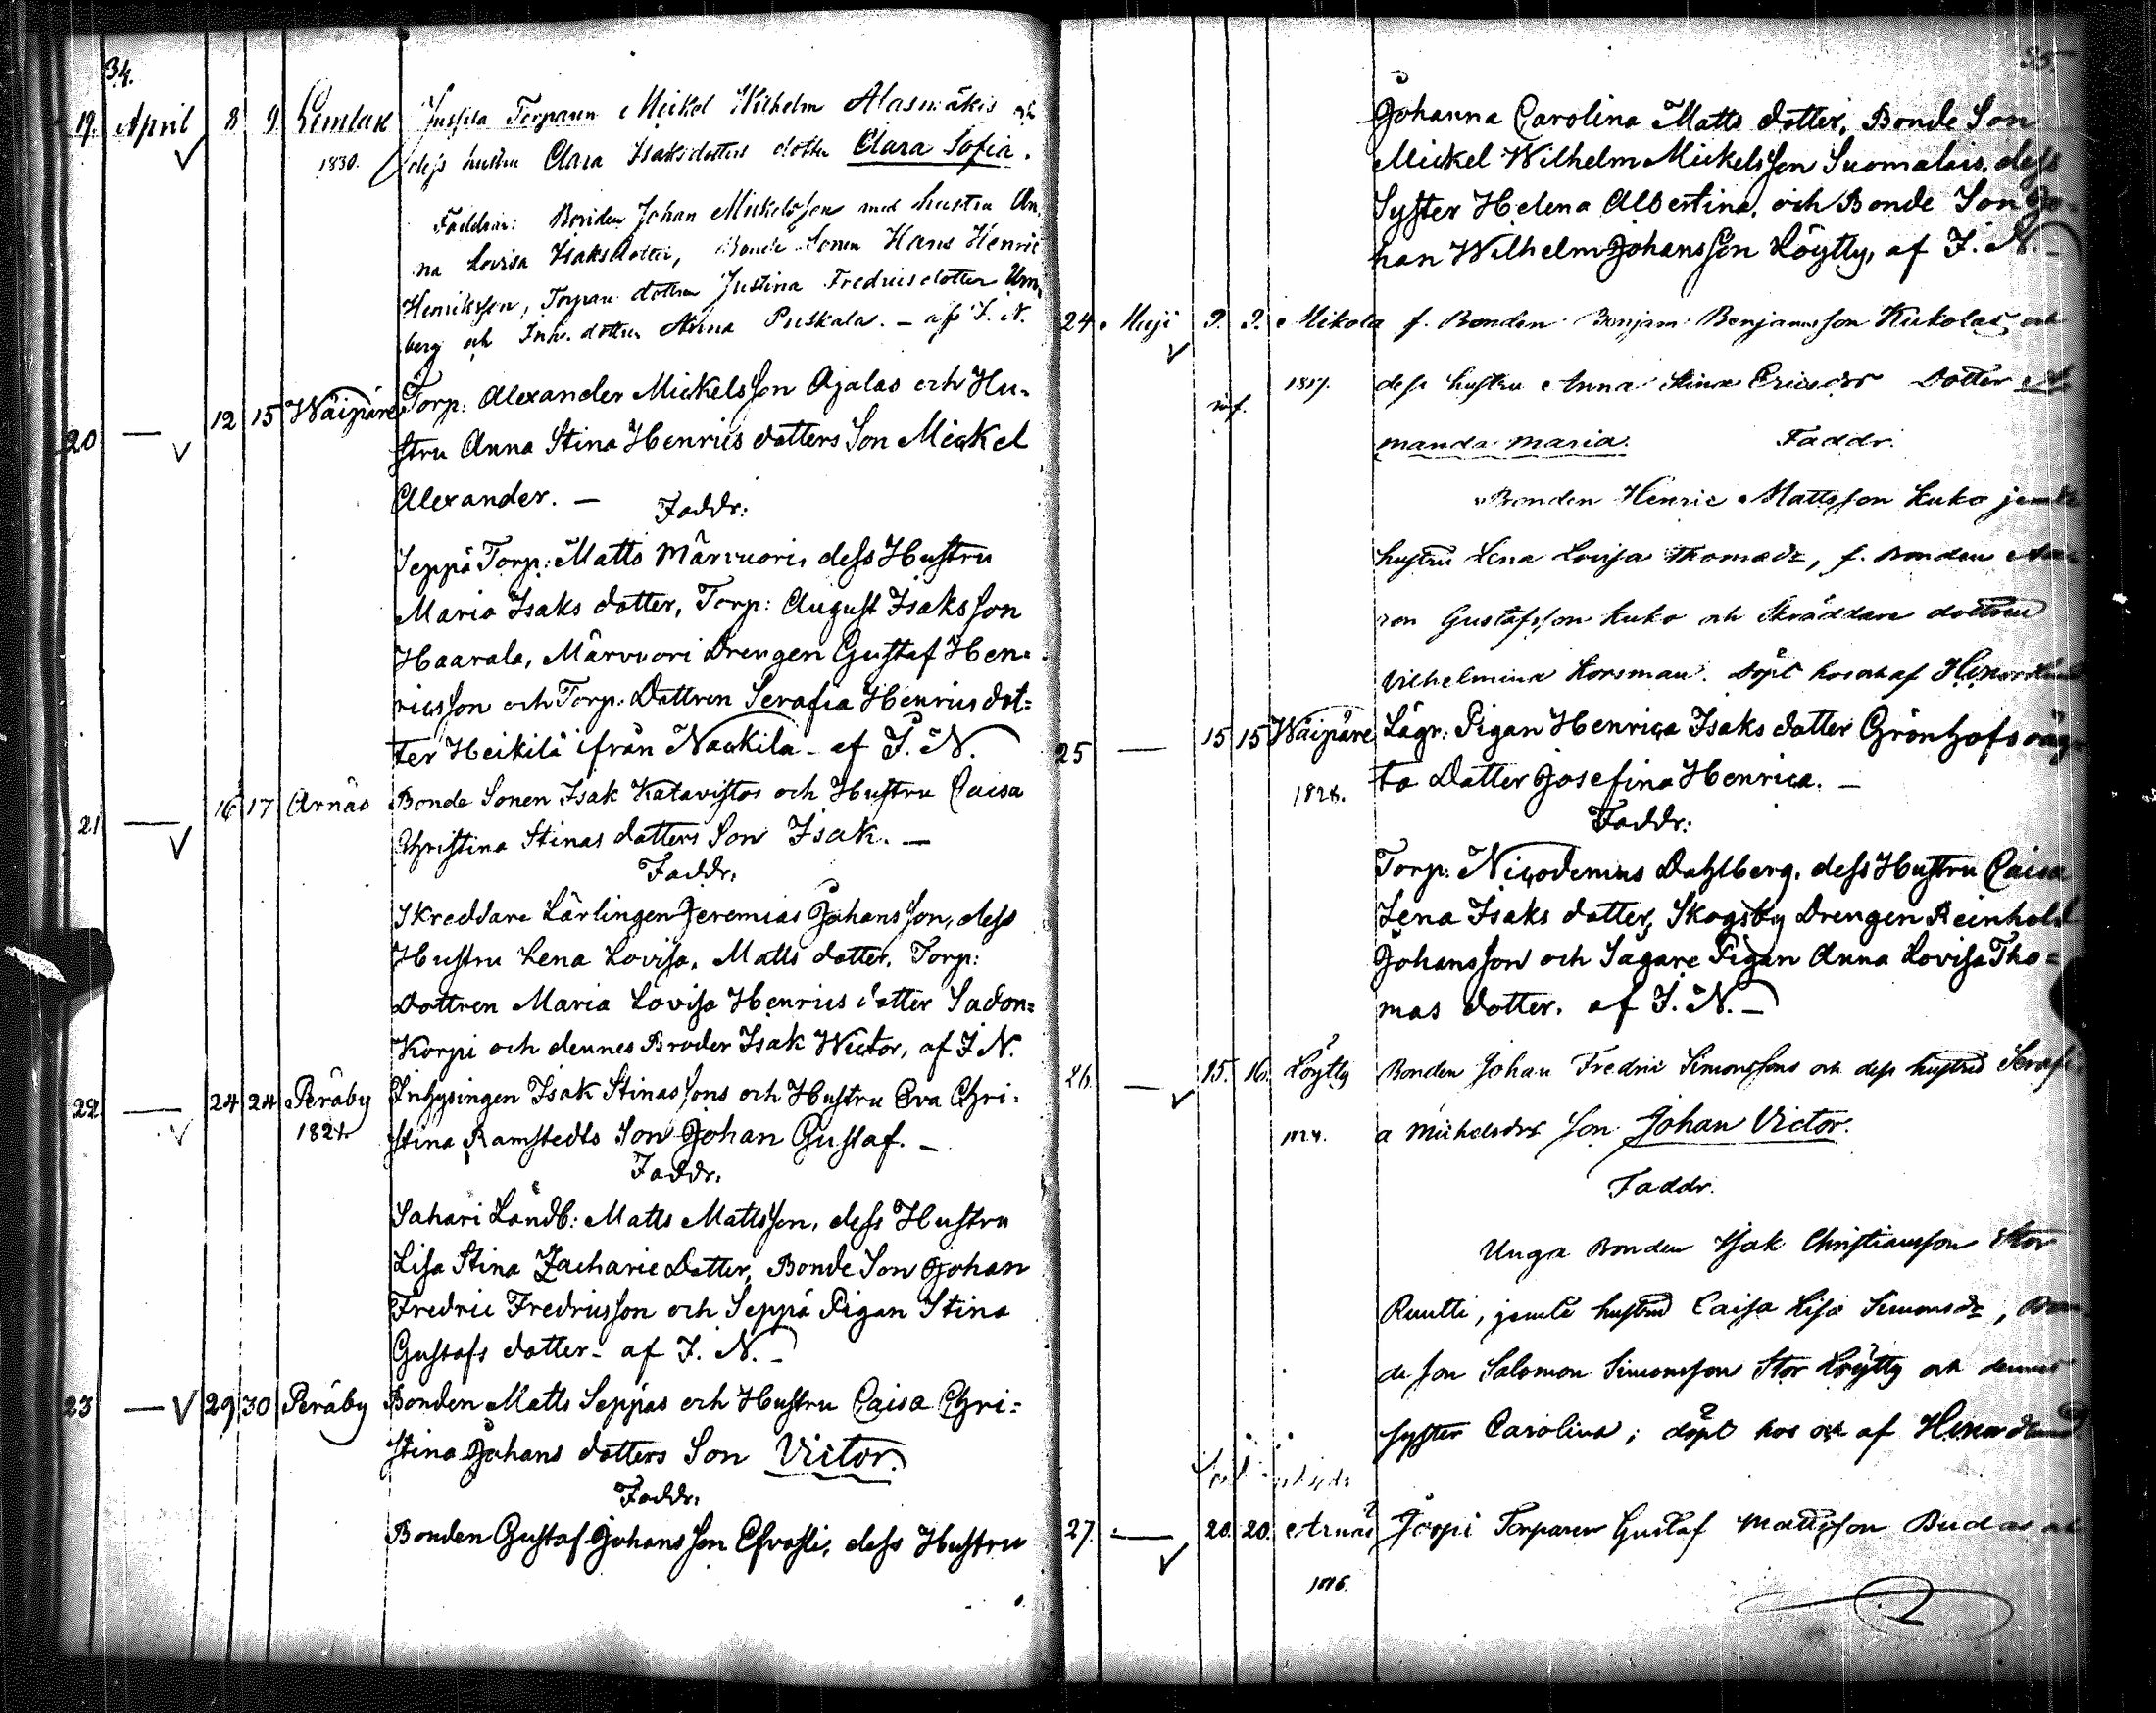 34.
19. April 8 9 Lemlax Jussila Torparen Mickel Wilhelm Alasmäkis och
1830. dess hustru Clara Isaksdotters dotter Clara Sofia.
Faddrar: Bonden Johan Mickelsson med hustru An,
na Lovisa Isaksdotter, Bonde Sonen Hans Henric
Henriksson, Torpare dottren Justina Fredricsdotter
berg och Inh. dottren Anna Puskala. – af J. N.
20 — 12 15 Wäipäre Torp: Alexander Mickelsson Ajalas och Hu-
stru Anna Stina Henrics dotters Son Mickel
Alexander. —
Faddr:
Seppä Torp: Matts Märvuori, dess Hustru
Maria Isaks dotter, Torp: August Isaksson
Haarala, Märvvori Drengen Gustaf Hen-
ricsson och Torp: Dottren Serafia Henrics dot=
ter Heikilä ifrån Nackila – af J. N.
21 — 16 17 Arnäs Bonde Sonen Isak Katavistos och Hustru Caisa
Christina Stinas dotters Son Isak. —
Faddr.
Skreddare Lärlingen Jeremias Johansson, dess
Hustru Lena Lovisa, Matts dotter, Torp:
Dottren Maria Lovisa Henrics dotter Sadon=
Korpi och dennes Broder Isak Wictor, af J N.
22 — 24 24 Peräby Inhysingen Isak Stinassons och Hustru Eva Chri-
1821. stina Ramstedts Son Johan Gustaf. —
Faddr.
Sahari Landb: Matts Mattsson, dess Hustru
Lisa Stina Zacharie Dotter, Bonde Son Johan
Fredric Fredricsson och Seppä Pigan Stina
Gustafs dotter – af J. N. –
23 — 29 30 Peräby Bonden Matts Seppäs och Hustru Caisa Chri=
stina Johans dotters Son Victor.
Faddr.
Bonden Gustaf Johansson Efvasti, dess Hustru
35
Johanna Carolina Matts dotter, Bonde Son
Mickel Wilhelm Mickelsson Suomalais, dess
Syster Helena Albertina, och Bonde Son Jo-
han Wilhelm Johansson Löytty, af J. N. –
24. Maji 9. 9. Mikola f. Bonden Benjam: Benjaminsson Kukolas, och
1817. dess hustru Anna Stina Ericsdrs Dotter A
manda Maria. Faddr.
Bonden Henric Mattsson Kuko jemte
hustru Lena Lovisa Thomasdr, f. Bonden Aa-
ron Gustafsson Kuko och Skräddare dottren
Vilhelmina Korsman. döpt hos och af
25 — 15 15 Wäipäre Lägr: Pigan Henrica Isaks dotter Grönhofs oäg-
1828. ta Dotter Josefina Henrica. —
Faddr:
Torp: Nicodemus Dahlberg, dess Hustru Caisa
Lena Isaks dotter, Skogsby Drengen Reinhold
Johansson och Sagare Pigan Anna Lovisa Tho=
mas dotter. af J. N. –
26. — 15. 16. Löytty Bonden Johan Fredric Simonssons och dess hustrus Serafi-
1824. a Michelsdrs Son Johan Victor.
Faddr.
Unga Bonden Isak Christiansson Stor
Ruutti, jemte hustru Caisa Lisa Simonsdr, Bon
de son Salomon Simonsson Stor Löytty och dennes
syster Carolina; döpt hos och af
27. — 20. 20. Arnäs Torparen Gustaf Mattsson Budas
1816.